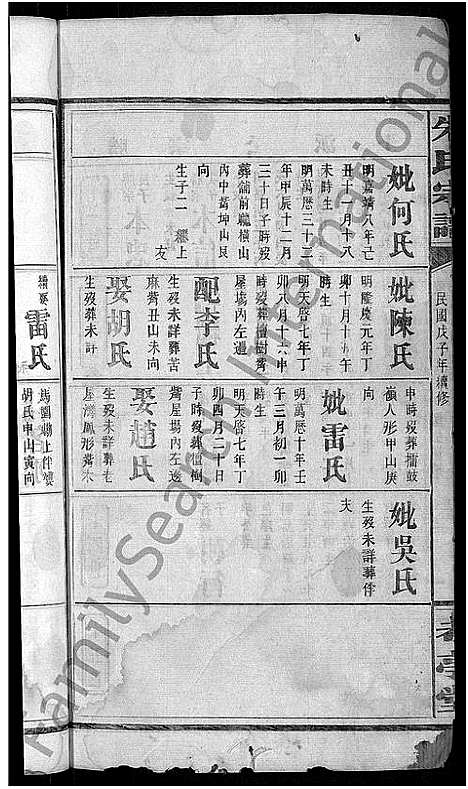 朱氏宗譜
民國戊子年續修
妣何氏
明嘉靖八年己
丑十一月十八
未時生
明萬曆三十二
年甲辰十二月
三十日子時歿
葬舖前聽橫山
內中嵩坤山艮
向
生子二 上
友
妣陳氏
明隆慶元年丁
卯十月十一午
時生
明天啓七年丁
卯八月十六申
時歿葬檀樹
屋場內左邊
配李氏
生歿未詳葬苦
麻嵛丑山未向
娶胡氏
生歿葬未詳
申時歿葬擂鼓
嶺人形甲山庚
向
妣雷氏
明萬曆十年壬
午三月初一卯
時生
明天啓七年丁
卯四月二十日
子時歿葬檀樹
嵛屋場內左邊
娶趙氏
生歿未詳葬老
屋灣鳳形嵛
妣吳氏
生歿未詳葬伴
夫
續娶
雷氏
馬劉塘上伴嫂
胡氏申山寅向
FamilySearch International